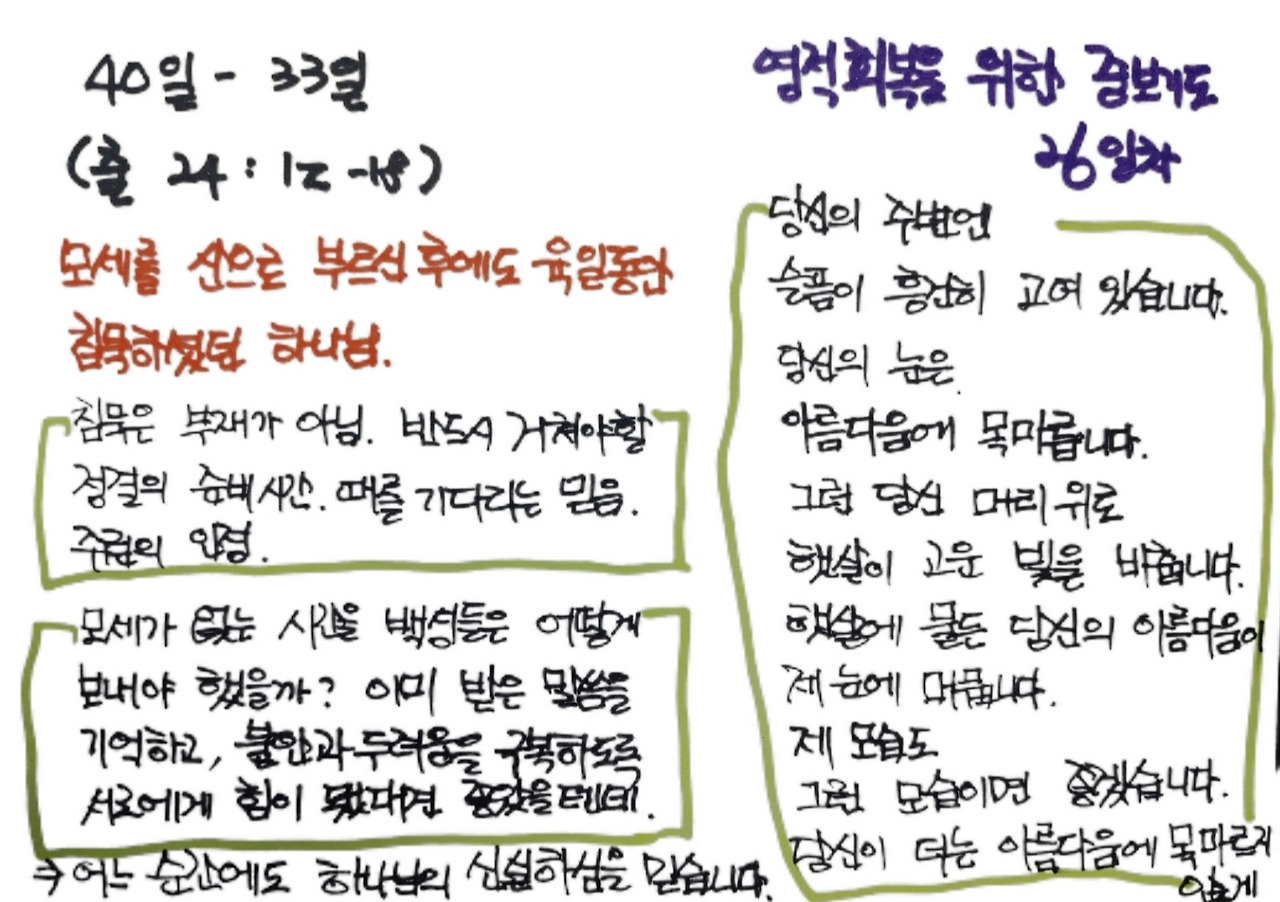 40일 - 33일
(출 24:12-18)
모세를 산으로 부르신 후에도 육일동안
침묵하셨던 하나님.
침묵은 부재가 아님. 반드시 거쳐야할
정결의 준비시간. 때를 기다리는 믿음.
주권의 인정.
모세가 없는 시간을 백성들은 어떻게
보내야 했을까? 이미 받은 말씀을
기억하고, 불안과 두려움을 극복하도록
서로에게 힘이 됐다면 좋았을텐데.
→ 어느 순간에도 하나님의 신실하심을 믿습니다.
영적회복을 위한 중보기도
26일차
당신의 주변엔
슬픔이 흥건히 고여 있습니다.
당신의 눈은
아름다움에 목마릅니다.
그런 당신 머리 위로
햇살이 고운 빛을 비춥니다.
햇살에 물든 당신의 아름다움이
제 눈에 머뭅니다.
제 모습도
그런 모습이면 좋겠습니다.
당신이 더는 아름다움에 목마르지
않게